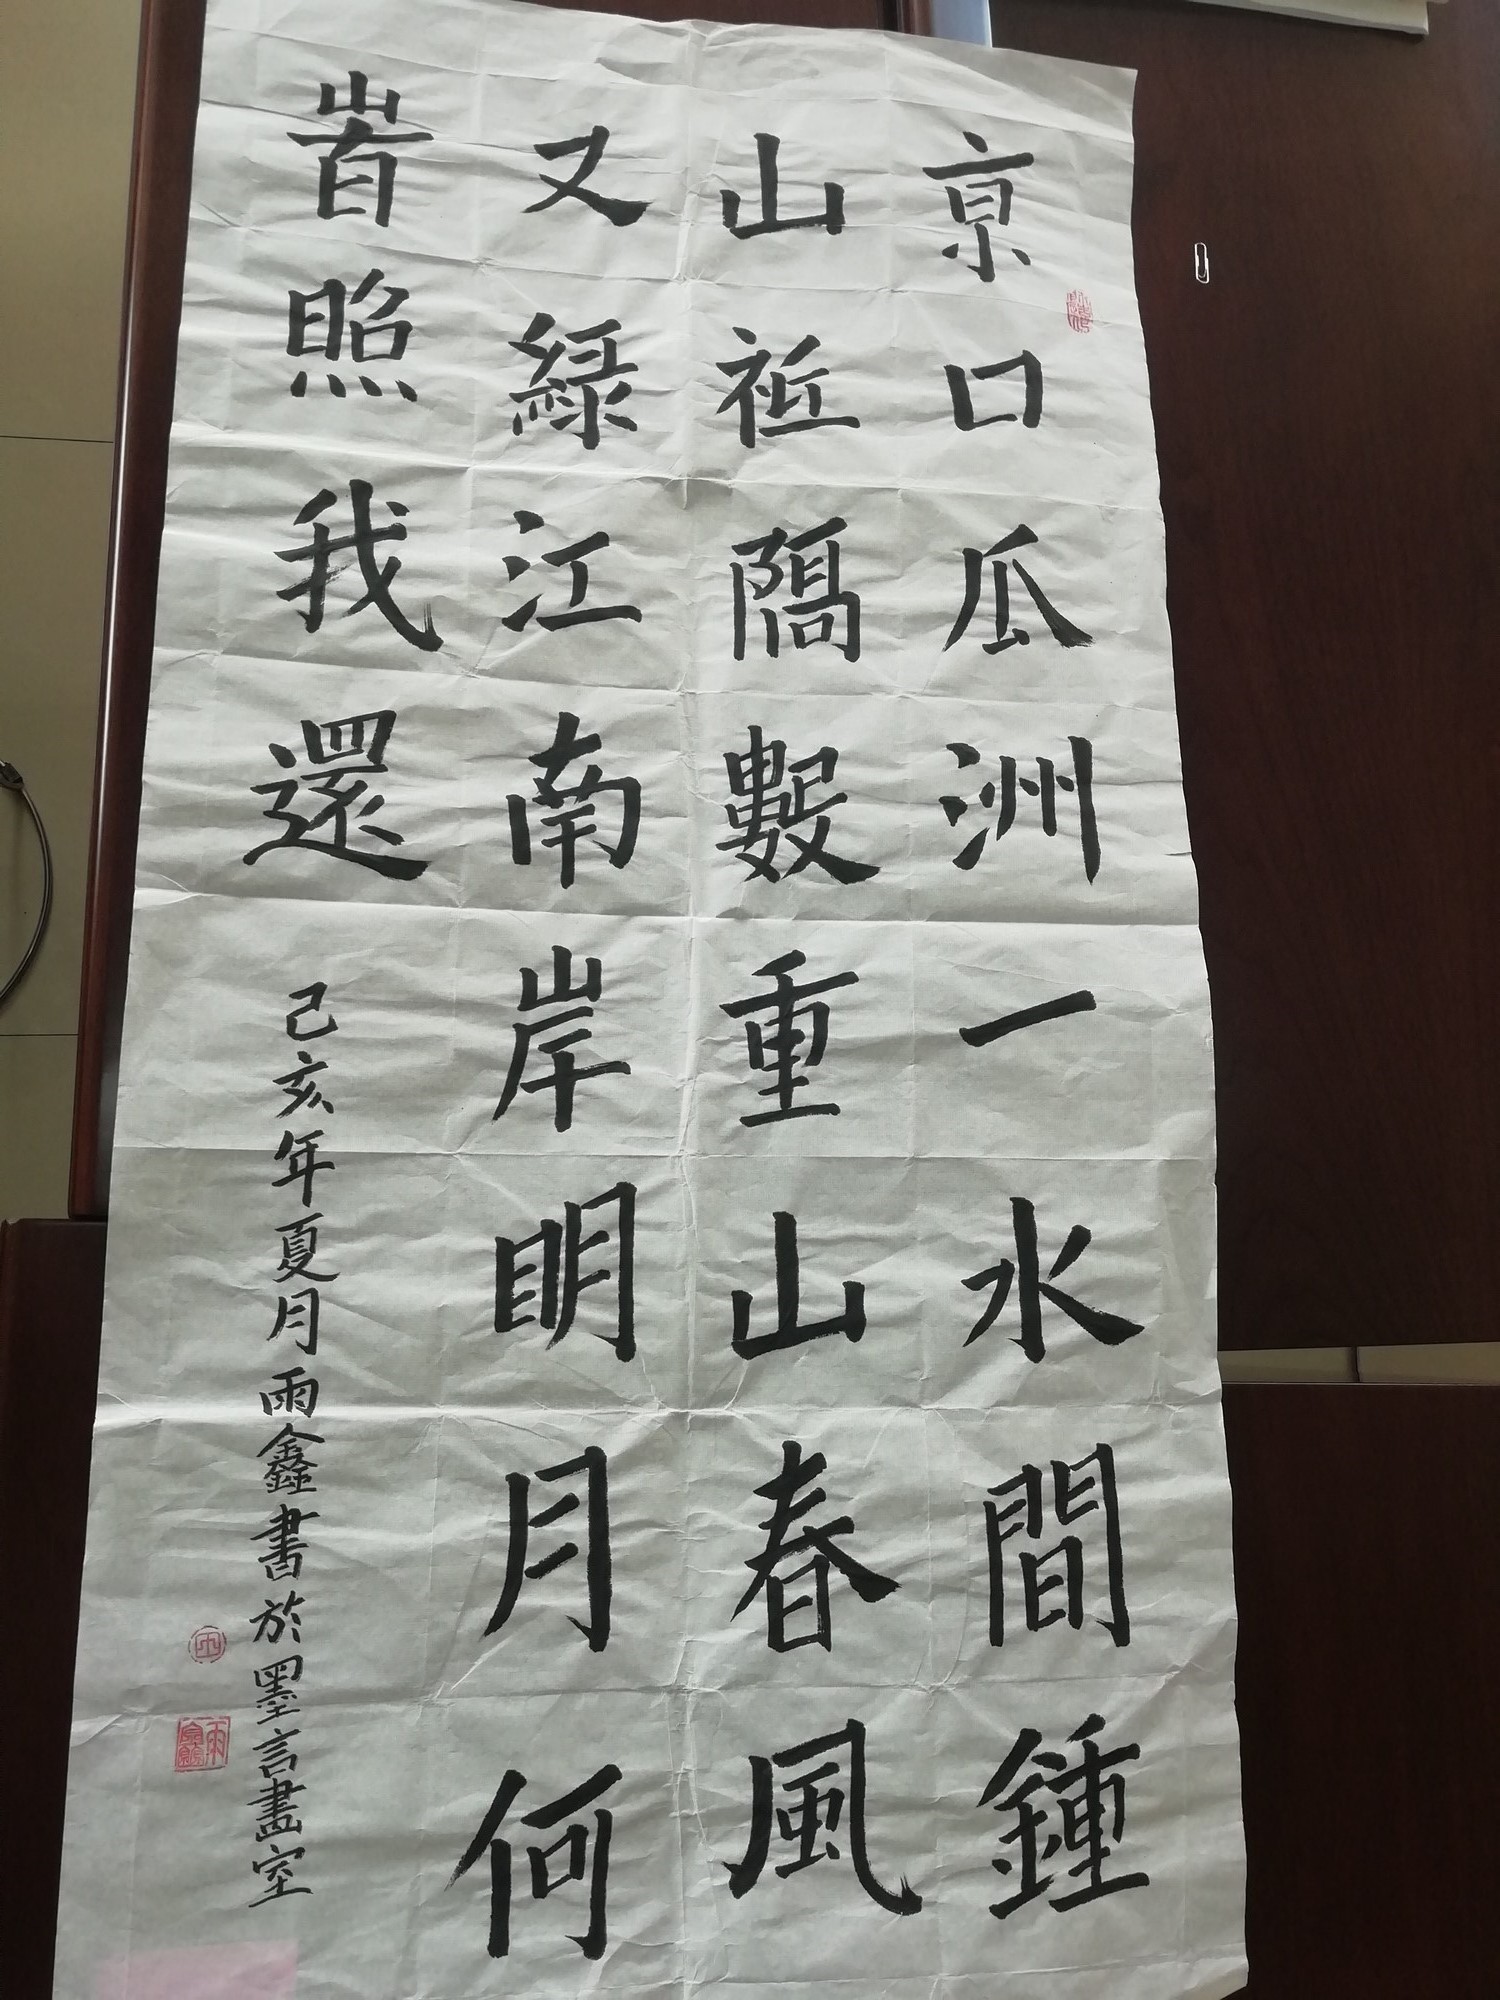 亰口瓜洲一水間鍾
山祗隔數重山春風
又緑江南岸眀月何
旹照我還
己亥年夏月雨鑫書於墨言畫室
雨
雨鑫